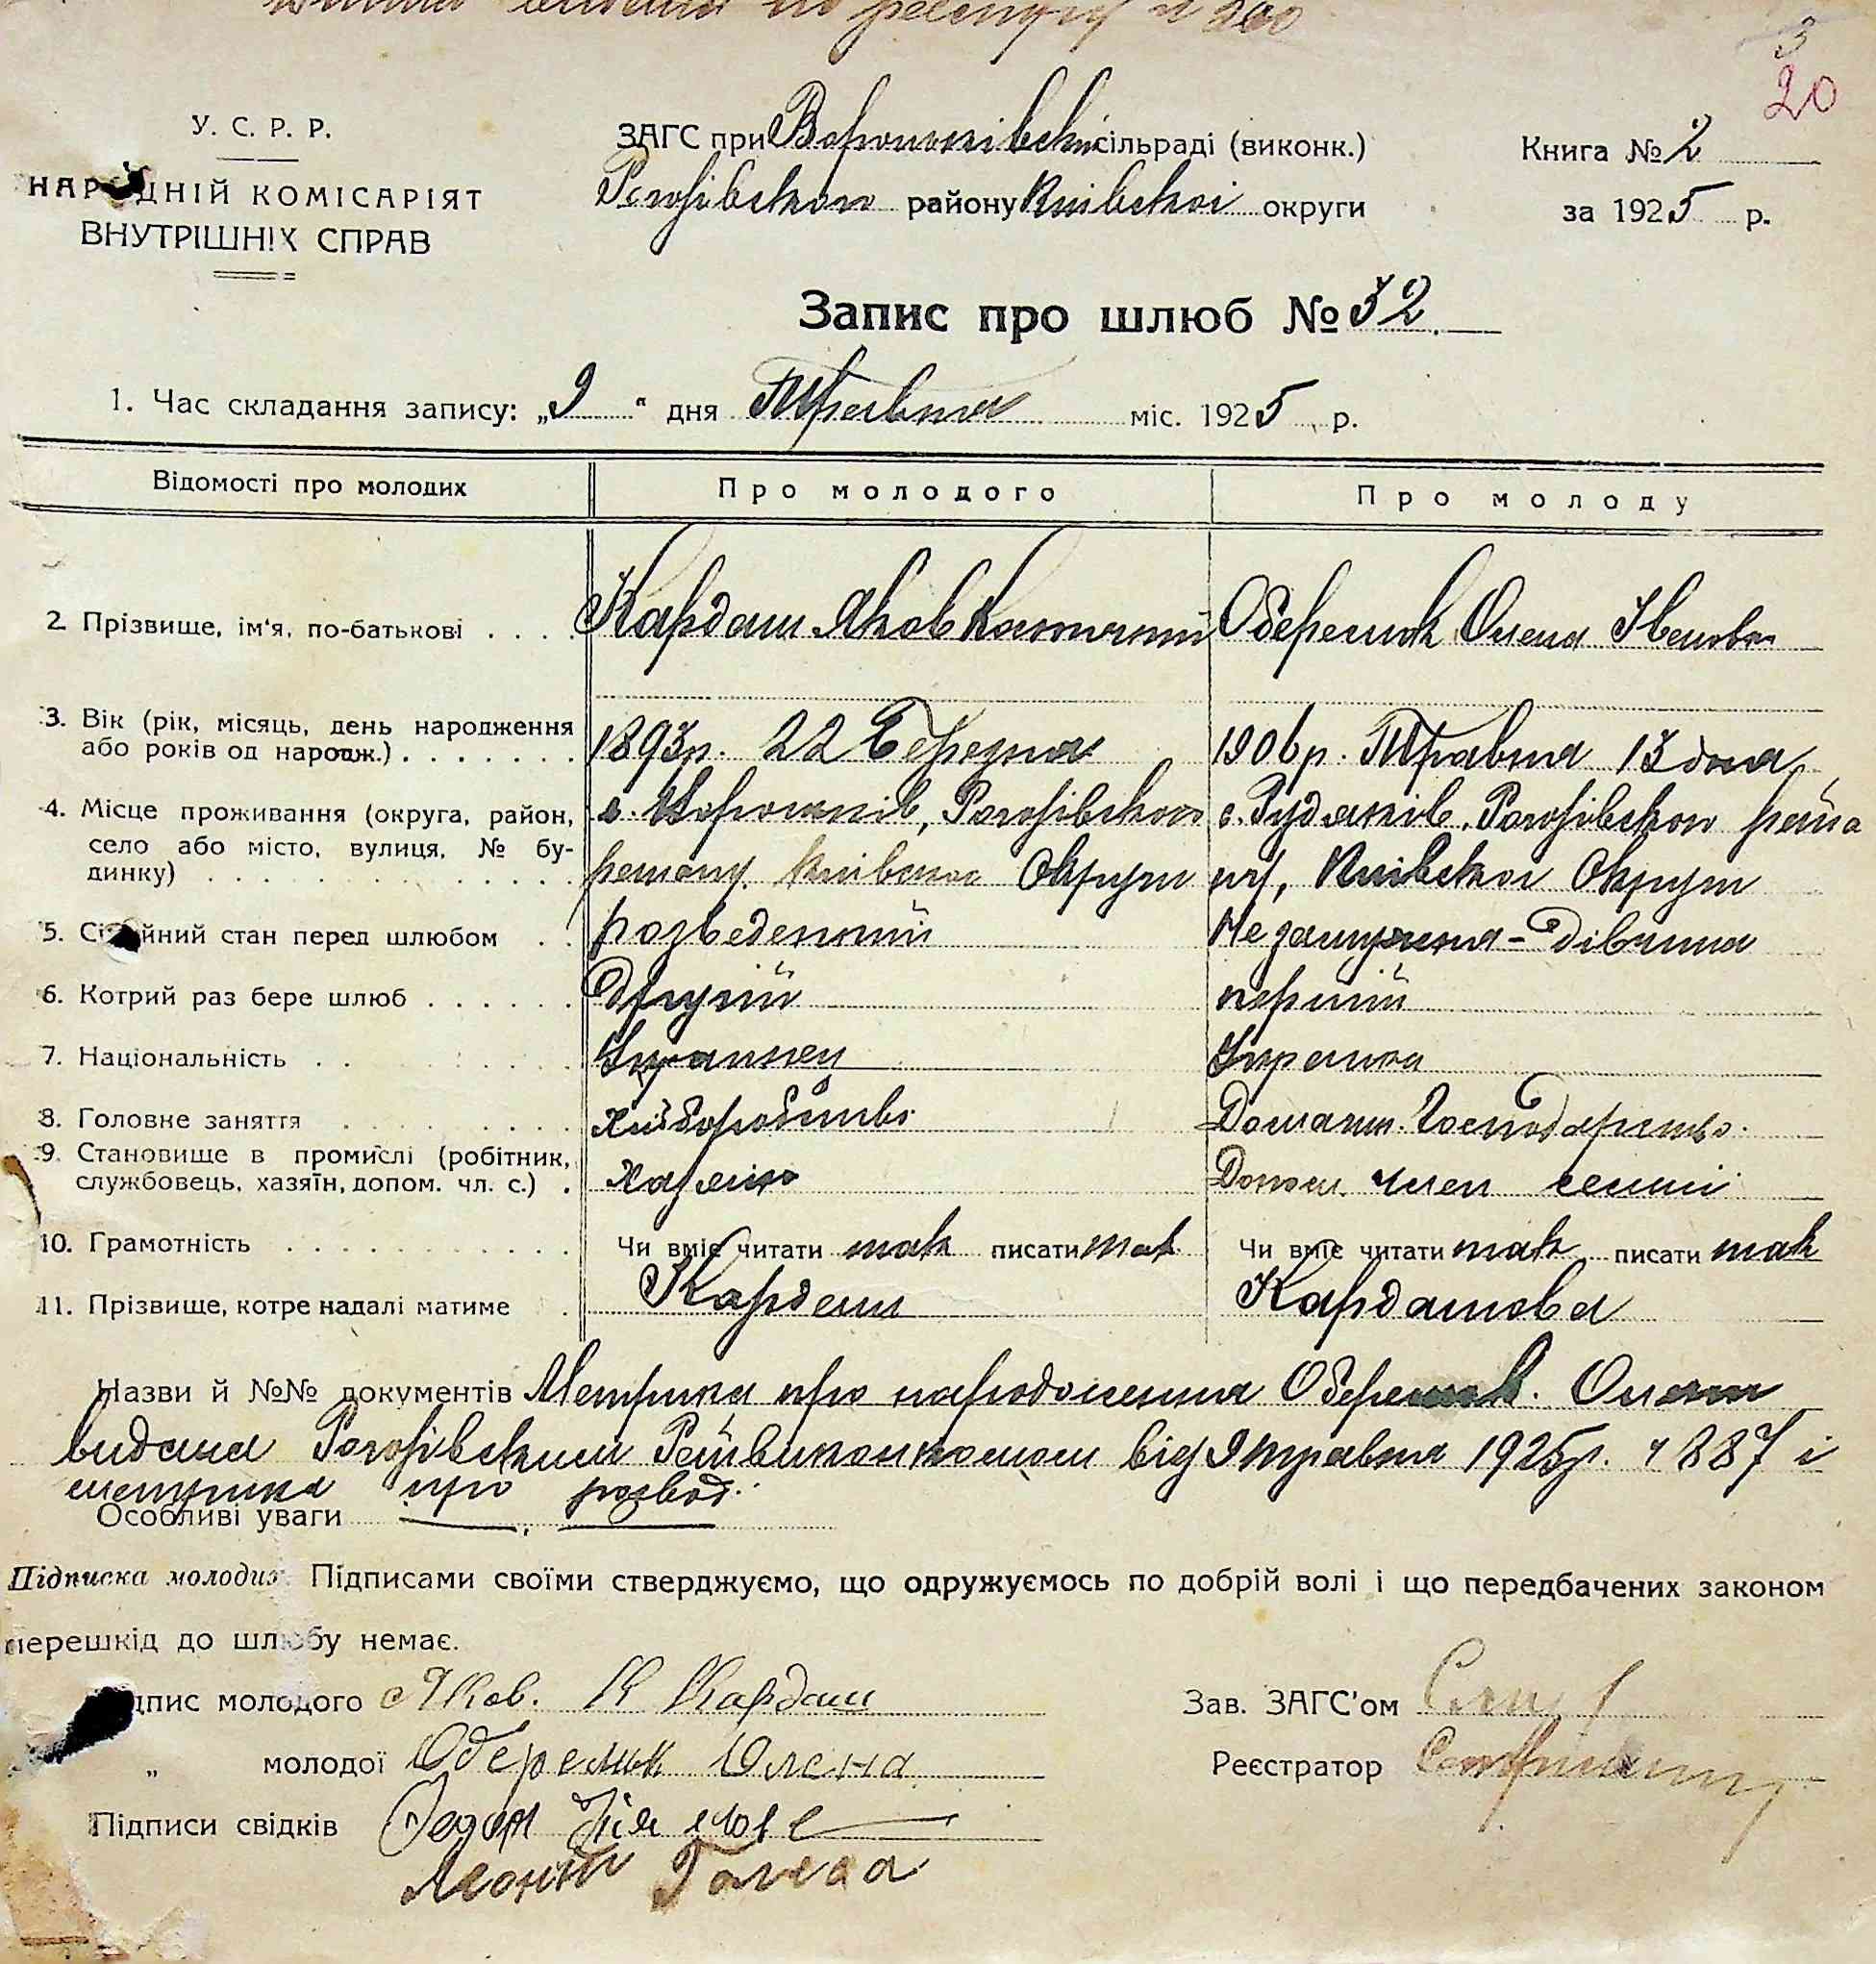 по реєстру № 200
3
20
У. С. Р. Р.
НАРОДНІЙ КОМІСАРІЯТ
ВНУТРІШНІХ СПРАВ
ЗАГС при Вороньківській сільраді (виконк.)
Рогозівського району Київської округи
Книга № 2
за 1925 р.
Запис про шлюб № 32
1. Час складання запису: „9“ дня Травня міс. 1925 р.
Відомості про молодих Про молодого Про молоду
2. Прізвище, ім'я, по-батькові Кардаш Яков Оберемок Олена Іванова
3. Вік (рік, місяць, день народження
або років од народж.) 1893 р. 22 Березня 1906 р. Травня 13 дня
4. Місце проживання (округа, район, с. Вороньків, Рогозівського с. Рудяків, Рогозівского райо
село або місто, вулиця, № бу- району Київської Округи ну, Київської Округи
динку)
5. Сімейний стан перед шлюбом розведенний Незамужня - Дівчина
6. Котрий раз бере шлюб Другий первий
7. Національність Українец Українка
8. Головне заняття Хліборобство Домашн. Господарство.
9. Становище в промислі (робітник,
службовець, хазяїн, допом. чл. с.) Хазяїн Допом. член семии
10. Грамотність Чи вміє читати так писати так Чи вміє читати так писати так
11. Прізвище, котре надалі матиме Кардаш Кардашова
Назви й №№ документів Метрика про народження Оберемок. Олени
видана Рогозівским Райвиконкомом від 9 травня 1925 р. № 887 і
метрика про розвод.
Особливі уваги
Підписка молодих. Підписами своїми стверджуємо, що одружуємось по добрій волі і що передбачених законом
перешкід до шлюбу немає.
Підпис молодого Яков. К Кардаш
Зав. ЗАГС'ом
„ молодої Оберемок Олена
Реєстратор
Підписи свідків